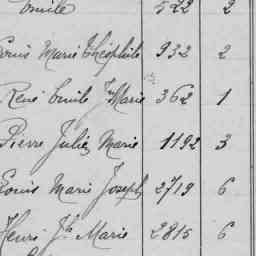 Emile 522 2
Louis Marie Théophile 932 2
René Emile J. Marie 362 1
Pierre Jules Marie 1192 3
Louis Marie Joseph 2719 6
Henri Jh Marie 2815 6